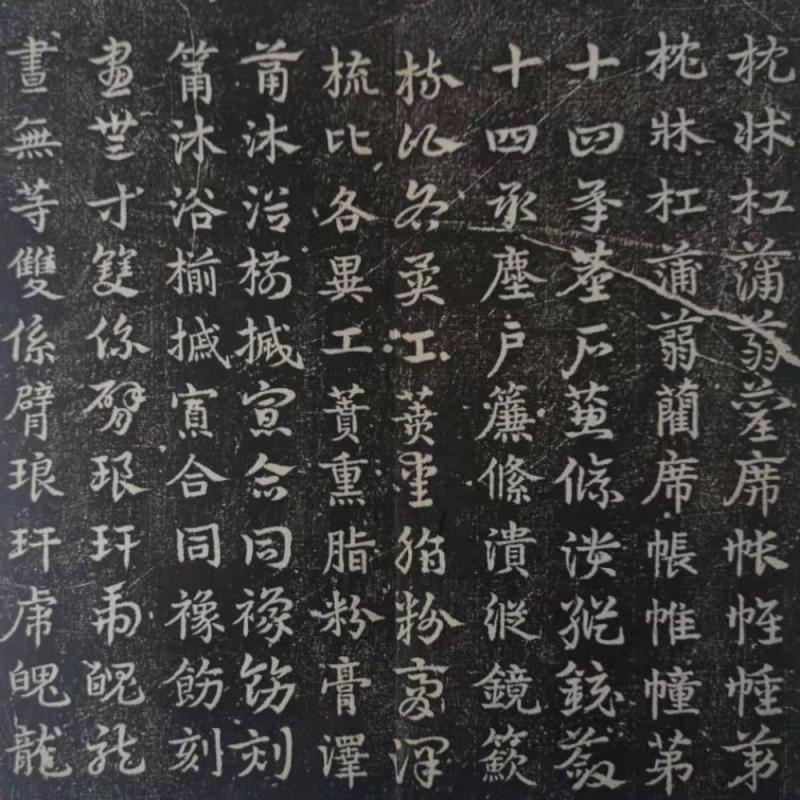 枕牀杠蒲蒻藺席帳帷幢第
枕牀杠蒲蒻藺席帳帷幢第
十四承塵户簾絛潰縱鏡籨
十四承塵户簾絛潰縱鏡籨
梳比各異工蕡熏脂粉膏澤
梳比各異工蕡熏脂粉膏澤
筩沐浴揃搣寡合同豫飭刻
筩沐浴揃搣寡合同豫飭刻
畫無等雙係臂琅玕虎魄龍
畫無等雙係臂琅玕虎魄龍